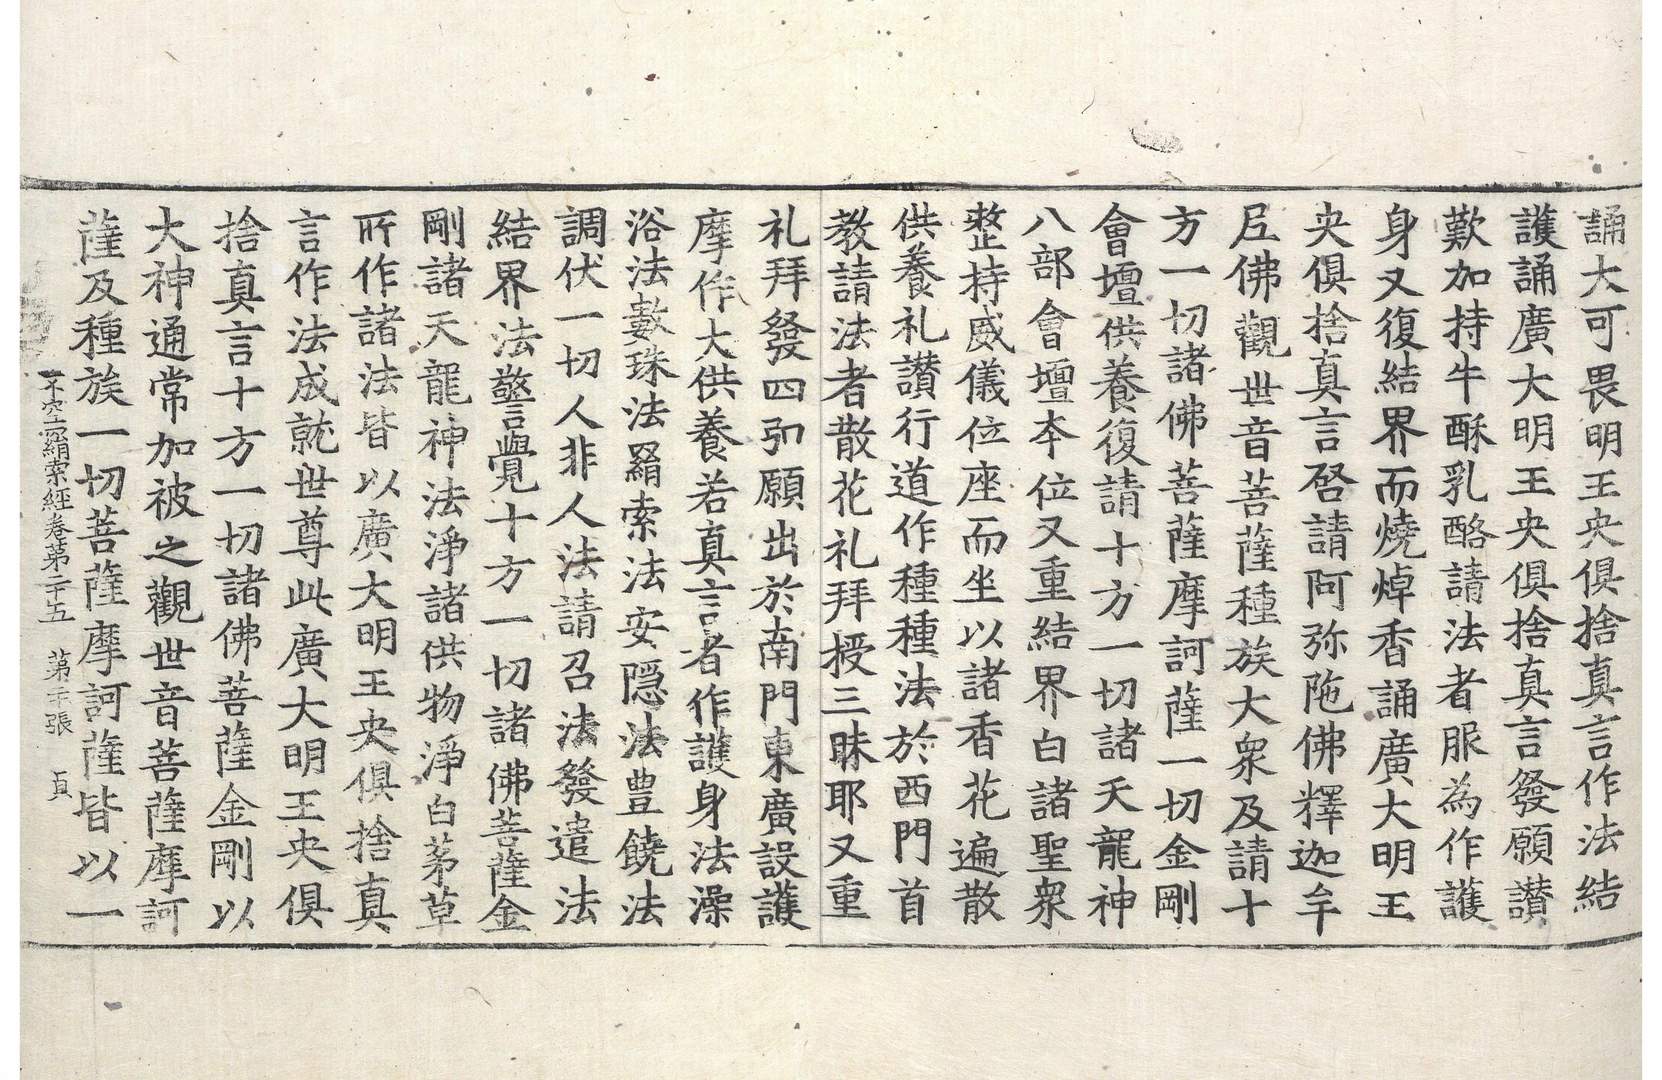 誦大可畏明王央俱捨真言作法結
護誦廣大明王央俱捨真言發願讃
歎加持牛酥乳酪請法者服為作護
身又復結界而燒焯香誦廣大明王
央俱捨真言啓請阿弥陁佛釋迦牟
尼佛觀世音菩薩種族大衆及請十
方一切諸佛菩薩摩訶薩一切金剛
會壇供養復請十方一切諸天龍神
八部會壇夲位又重結界白諸聖衆
整持威儀位座而坐以諸香花遍散
供養礼讃行道作種種法於西門首
教請法者散花礼拜授三昧耶又重
礼拜發四弘願出於南門東廣設護
摩作大供養若真言者作護身法澡
浴法數珠法羂索法安隠法豊饒法
調伏一切人非人法請召法發遣法
結界法警覺十方一切諸佛菩薩金
剛諸天龍神法淨諸供物淨白茅草
所作諸法皆以廣大明王央俱捨真
言作法成就世尊此廣大明王央俱
捨真言十方一切諸佛菩薩金剛以
大神通常加被之觀世音菩薩摩訶
薩及種族一切菩薩摩訶薩皆以一
不空羂索經卷第二十五 第二十張 貞